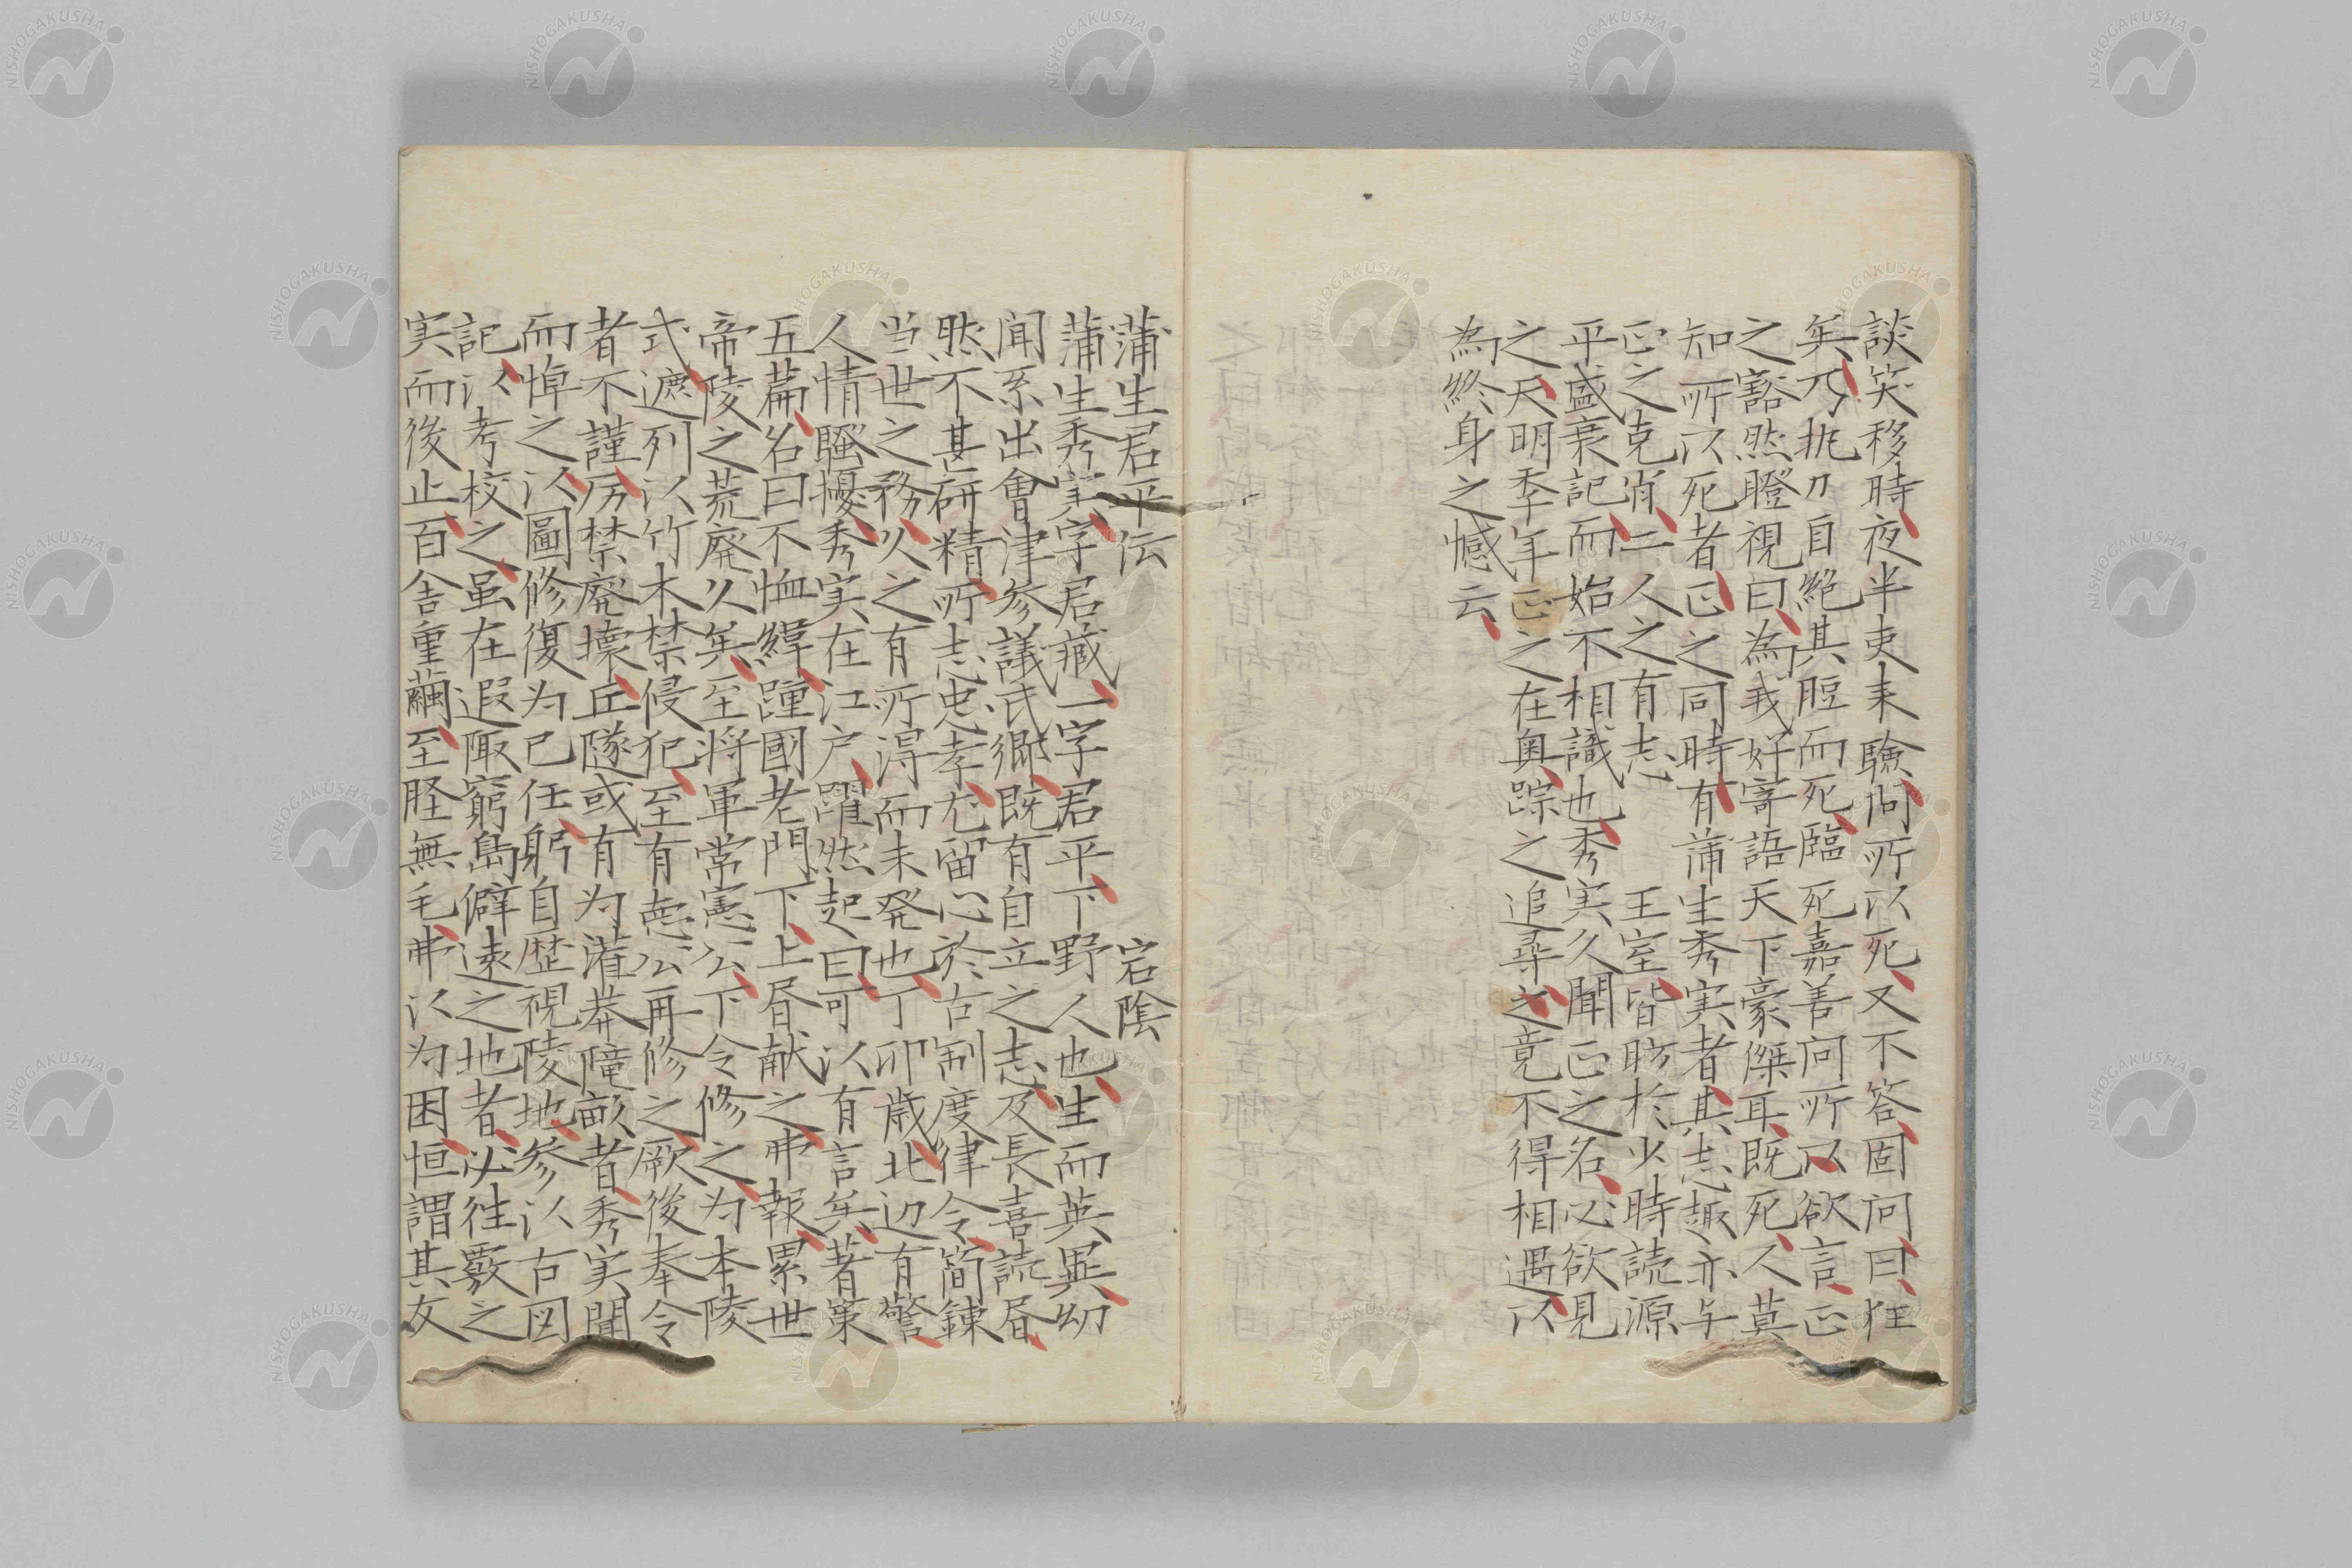 談笑移時夜半吏来験問所以死又不答固問曰狂
矣乃抛刀自絶其脰而死臨死嘉善問所以欲言正
之豁然瞪視曰為我好寄語天下豪傑耳既死人莫
知所以死者正之同時有蒲生秀実者其志趣亦与
正之克肖二人之有志 王室皆昉於少時読源
平盛衰記而始不相識也秀実久聞正之名心欲見
之天明季年正之在奥踪之追尋之竟不得相遇以
為終身之憾云
蒲生君平伝 宕陰
蒲生秀実字君臧一字君平下野人也生而英異幼
闻系出會津参議氏郷既有自立之志及長喜読昏
然不甚研精所志忠孝尤留心於古制度律令簡錬
当世之務久之有所淂而未発也丁卯歳北辺有警
人情騒擾秀実在江户躍然起曰可以有言矣著策
五篇名曰不恤緯踵國老門下上昏献之弗報累世
帝陵之荒廃久矣至将軍常憲公下令修之为本陵
式遮列以竹木禁侵犯至有憲公再修之厥後奉令
者不謹厉禁廃壊丘隧或有为灌莽隴畝者秀実聞
而悼之以圖修復为已任躬自歴視陵地参以古図
記以考校之虽在遐陬窮島僻遠之地者必往覈之
実而後止百舎重繭至胫無毛弗以为困恒謂其友
NISHOGAKUSHA